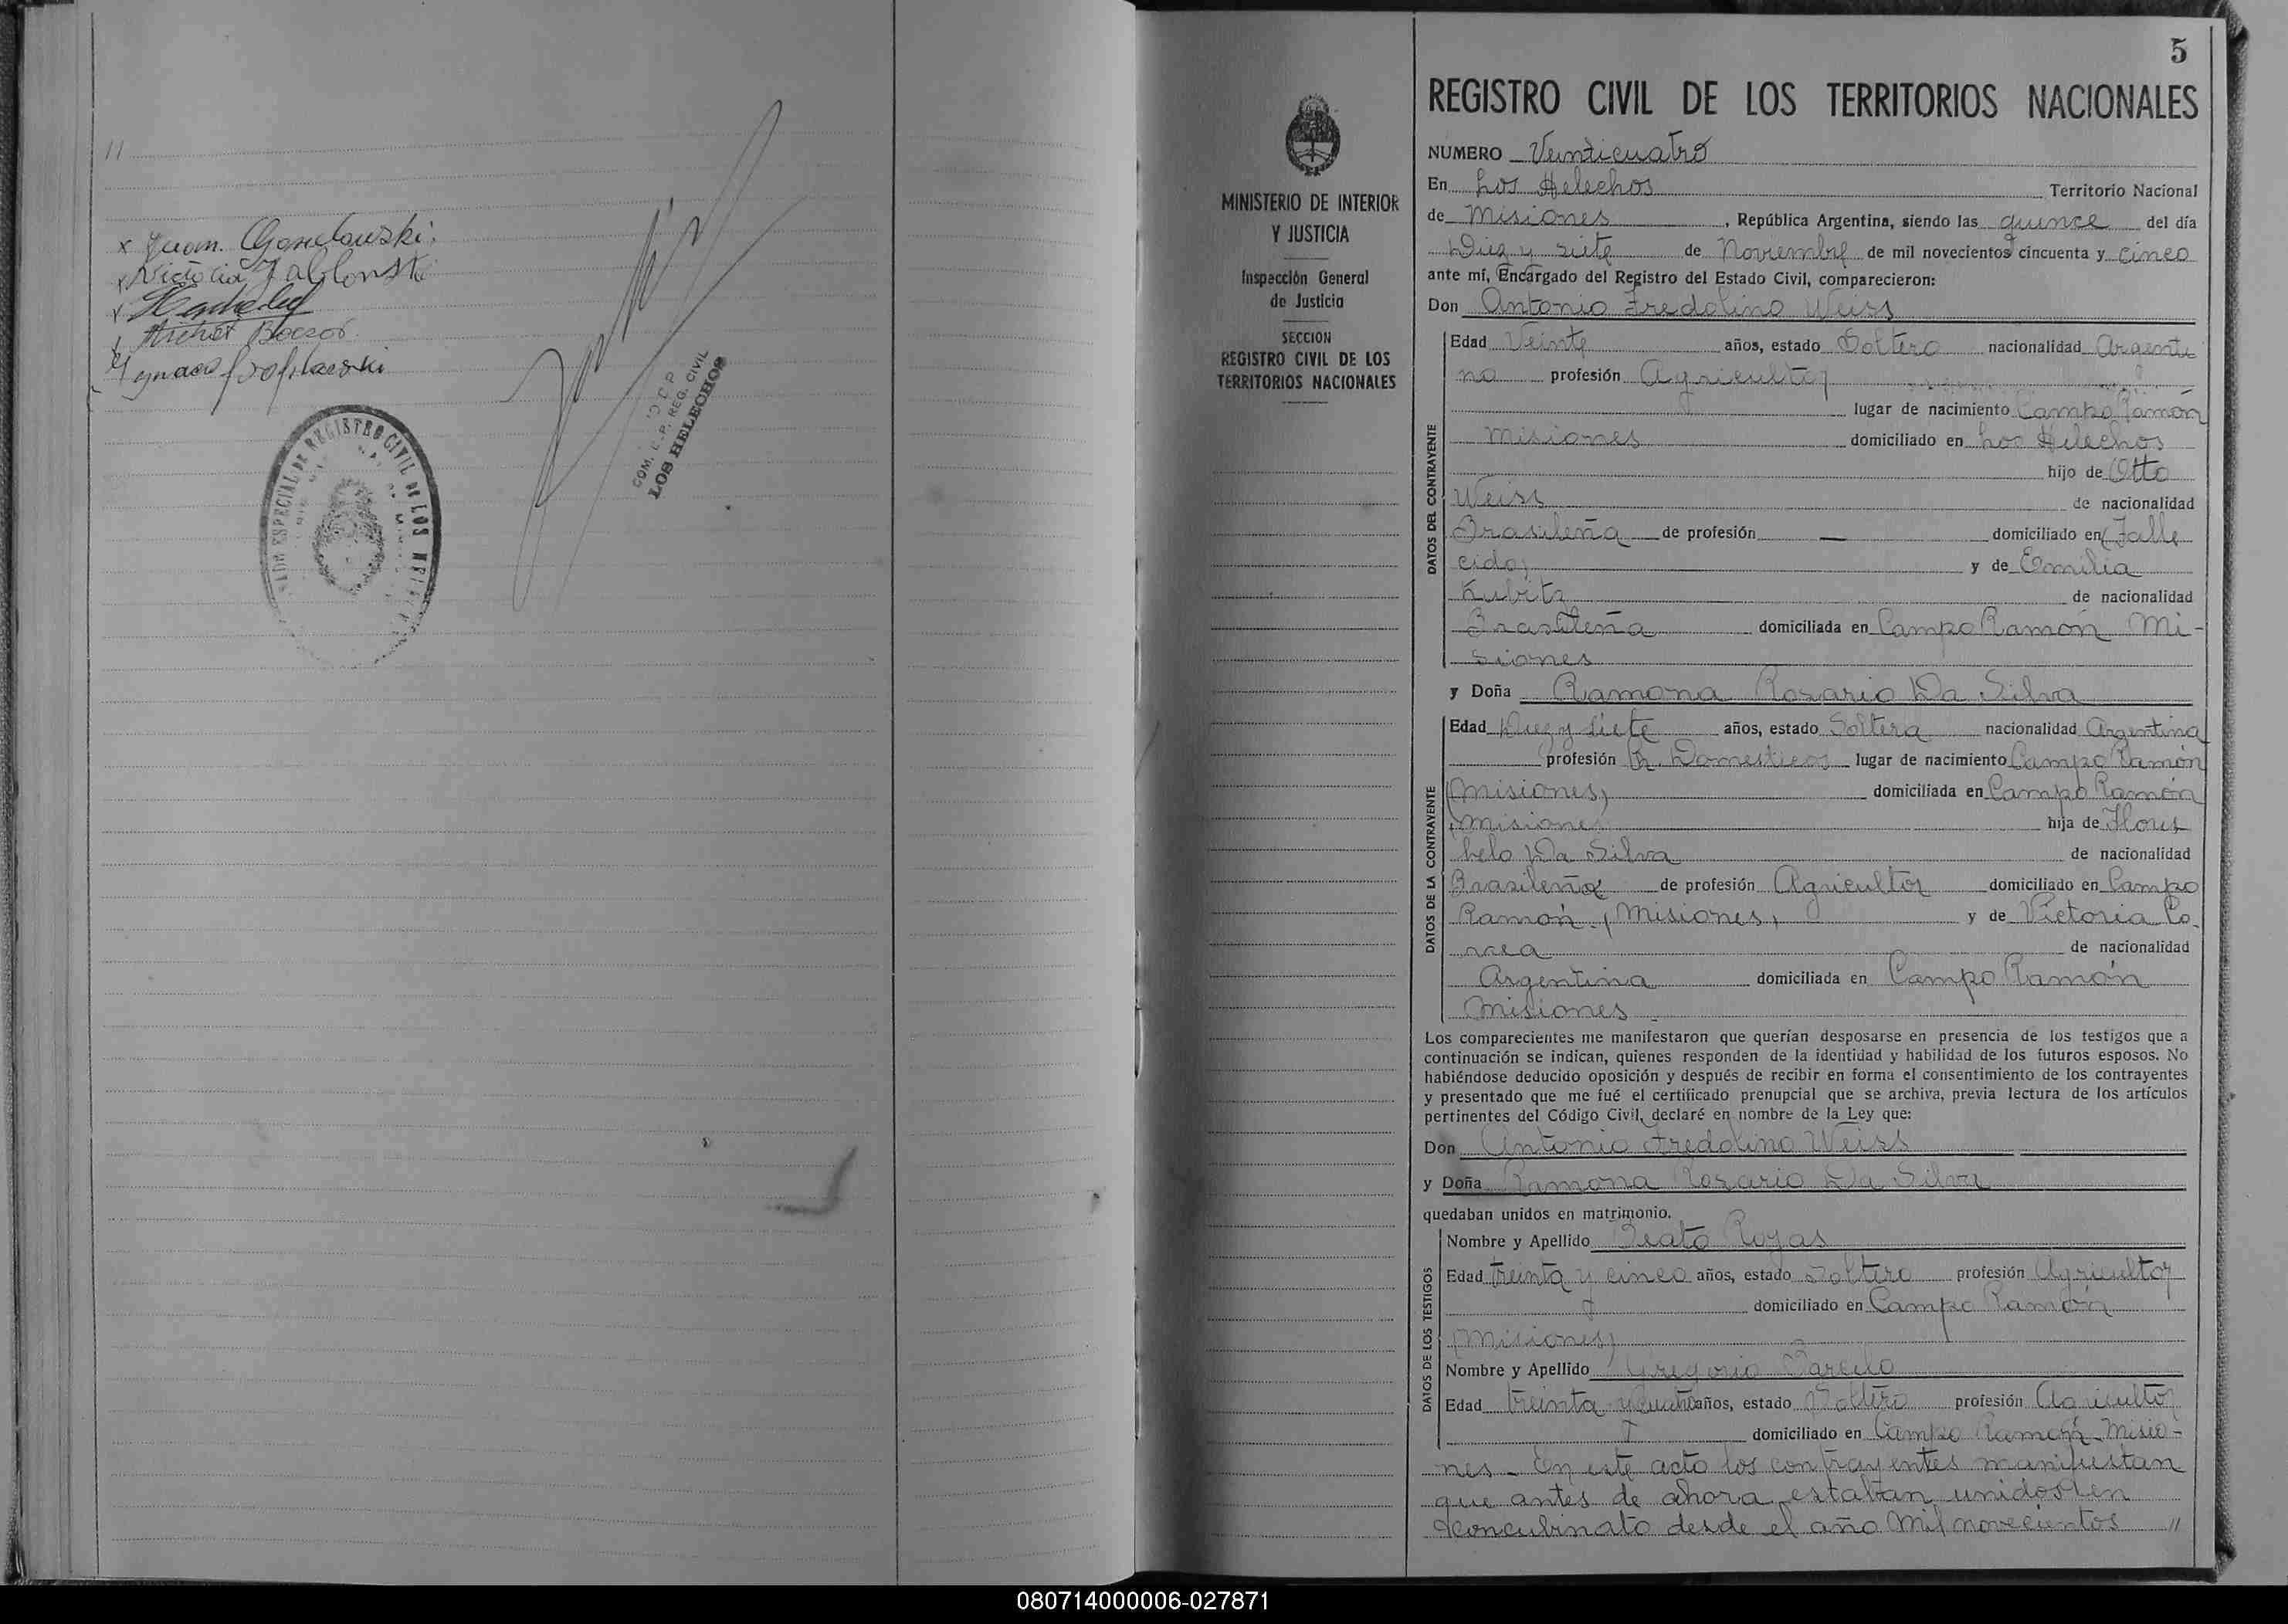 //
x Juan
x Victoria Jablonski
x
x
x Ignacio
REGISTRO CIVIL DE LOS
COM. E.P. REG. CIVIL
LOS HELECHOS
5
MINISTERIO DE INTERIOR
Y JUSTICIA
Inspección General
de Justicia
SECCION
REGISTRO CIVIL DE LOS
TERRITORIOS NACIONALES
REGISTRO CIVIL DE LOS TERRITORIOS NACIONALES
NUMERO Veinticuatro
En Los Helechos Territorio Nacional
de Misiones, República Argentina, siendo las quince del día
Diez y siete de Noviembre de mil novecientos cincuenta y cinco
ante mí, Encargado del Registro del Estado Civil, comparecieron:
Don Antonio Fredolino Weiss
DATOS DEL CONTRAYENTE
Edad Veinte años, estado Soltero nacionalidad Argenti
na profesión Agricultor
lugar de nacimiento Campo Ramón
Misiones domiciliado en Los Helechos
hijo de Otto
Weiss de nacionalidad
Brasileña de profesión — domiciliado en (Falle
cido) y de Emilia
Kubitz de nacionalidad
Brasileña domiciliada en Campo Ramón Mi-
siones
y Doña Ramona Rosario Da Silva
DATOS DE LA CONTRAYENTE
Edad Diez y siete años, estado Soltera nacionalidad Argentina
profesión Q. Domesticos lugar de nacimiento Campo Ramón
(Misiones) domiciliada en Campo Ramón
(Misiones) hija de Floris
belo Da Silva de nacionalidad
Brasileña de profesión Agricultor domiciliado en Campo
Ramón (Misiones) y de Victoria Co
rrea de nacionalidad
Argentina domiciliada en Campo Ramón
Misiones
Los comparecientes me manifestaron que querían desposarse en presencia de los testigos que a
continuación se indican, quienes responden de la identidad y habilidad de los futuros esposos. No
habiéndose deducido oposición y después de recibir en forma el consentimiento de los contrayentes
y presentado que me fué el certificado prenupcial que se archiva, previa lectura de los artículos
pertinentes del Código Civil, declaré en nombre de la Ley que:
Don Antonio Fredolino Weiss
y Doña Ramona Rosario Da Silva
quedaban unidos en matrimonio.
DATOS DE LOS TESTIGOS
Nombre y Apellido Beato Rojas
Edad treinta y cinco años, estado Soltero profesión Agricultor
domiciliado en Campo Ramón
(Misiones)
Nombre y Apellido Gregorio
Edad treinta y cuatro años, estado Soltero profesión Agricultor
domiciliado en Campo Ramón Misio-
nes - En este acto los contrayentes manifiestan
que antes de ahora estaban unidos en
concubinato desde el año mil novecientos //
080714000006-027871